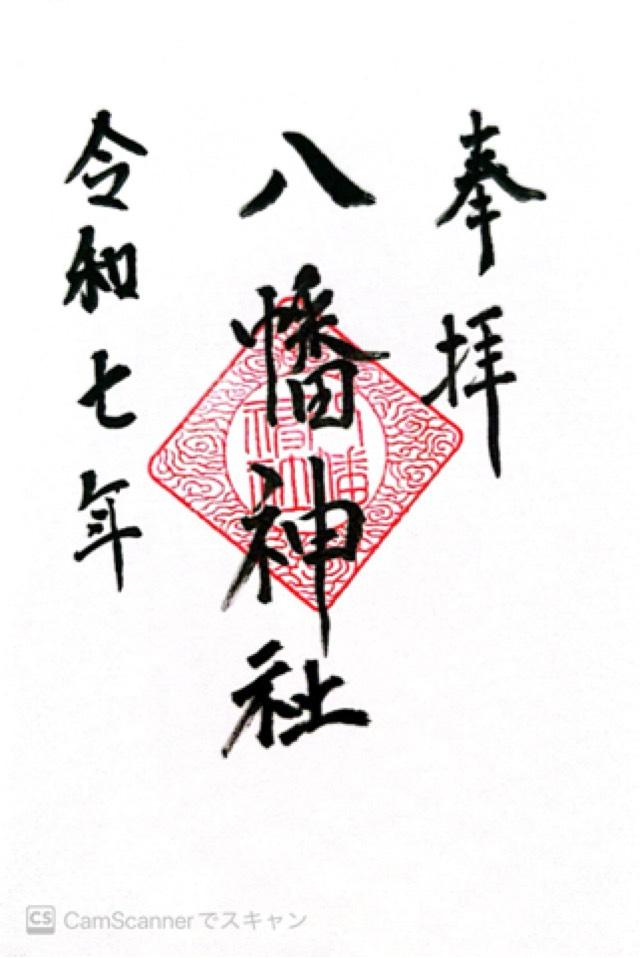 奉拝
八幡神社
令和七年
CS CamScannerでスキャン